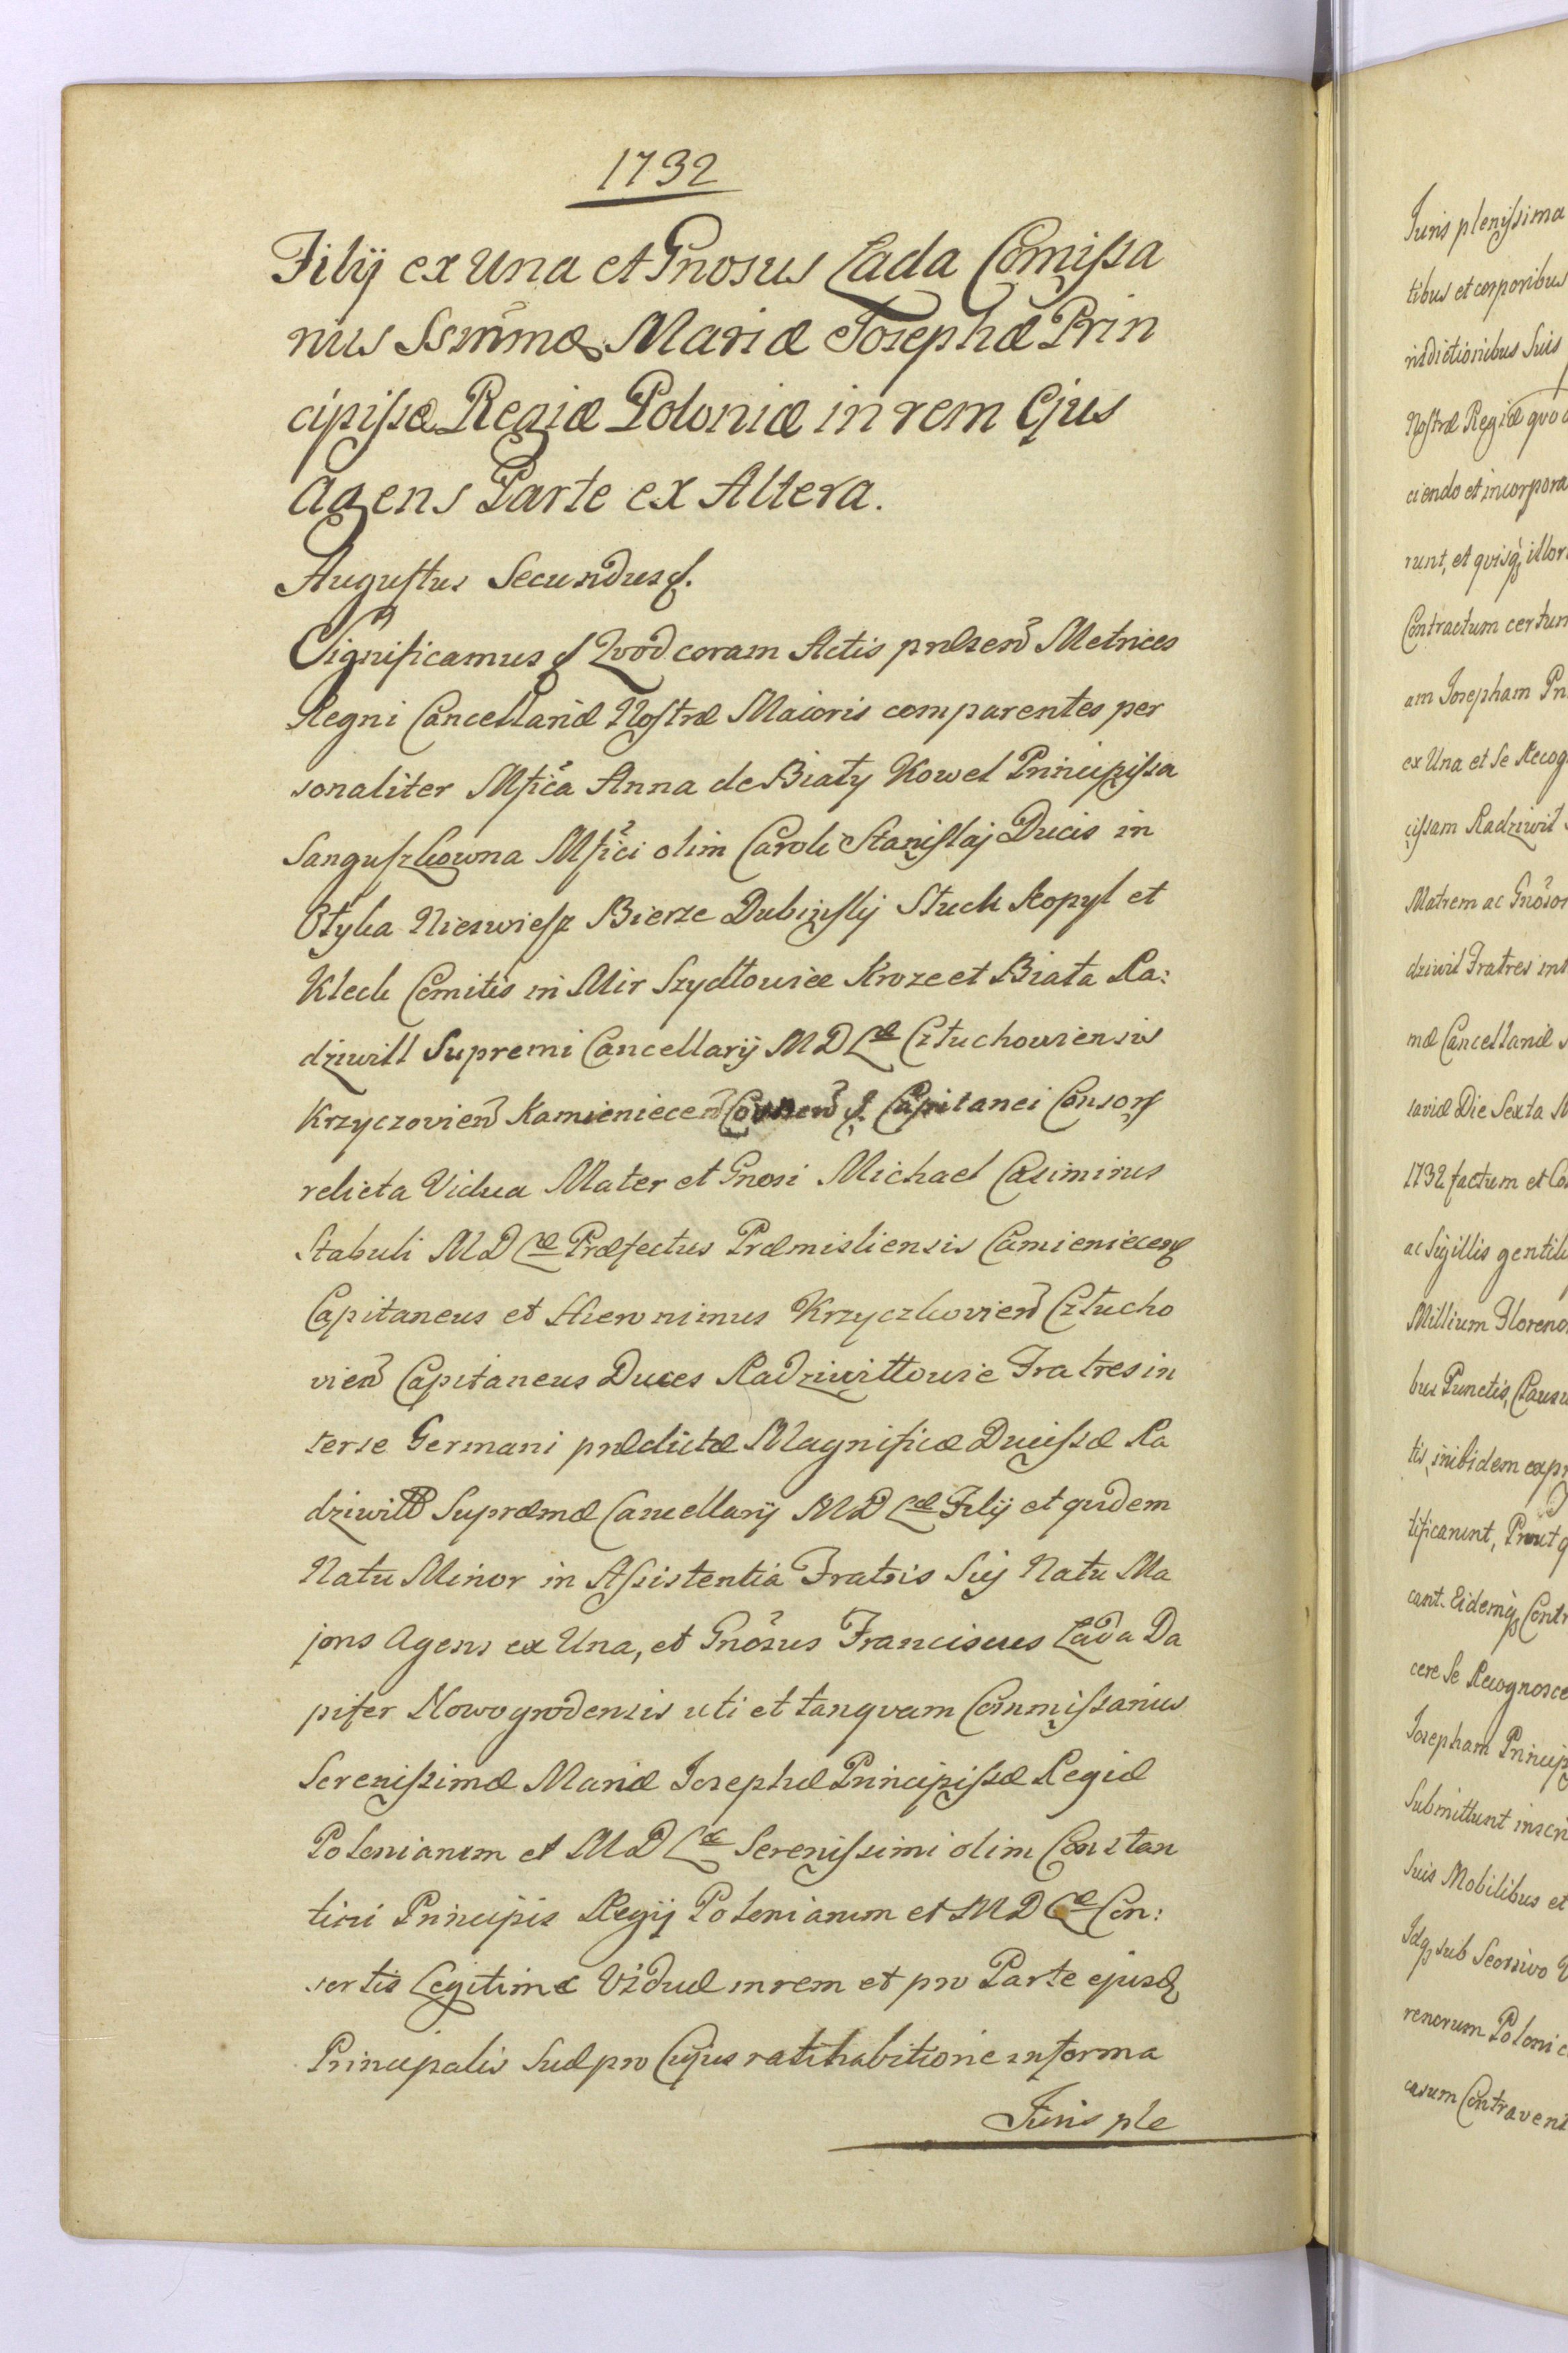 1732
Filÿ ex Una et Gnosus Łada Comißa
rius Ssm̃mæ Mariæ Josephæ Prin
cipißæ Regiæ Poloniæ in rem Ejus
Agens Parte ex Altera.
Augustus Secundus
Significamus Quod coram Actis præsen̄ Metrices
Regni Cancellariæ Nostræ Maioris comparentes per
sonaliter Mfic̃a Anna de Biały Kowel Principißa
Sanguszkowna Mfic̃i olim Caroli Stanislaj Ducis in
Ołyka Nieswiesz Bierze Dubinskÿ Słuck Kopyl et
Kleck Comitis in Mir Szydłowiec Kroze et Biała Ra:
dziwill Supremi Cancellarÿ M D Læ Człuchoviensis
Krzyczovien̄ Kamieniecen̄ Capitanei Consors
relicta Vidua Mater et Gnosi Michael Casimirus
Stabuli M D Læ Præfectus Præmisliensis Camieniecen
Capitaneus et Hieronimus Krzyczkovien̄ Człucho
vien̄ Capitaneus Duces Radziwiłłowie Fratres in
ter se Germani prædictæ Magnificæ Ducißæ Ra
dziwill Supræmæ Cancellarÿ M D Læ Filÿ et quidem
Natu Minor in Aßistentia Fratris Sui Natu Ma
joris Agens ex Una, et Gnõsus Franciscus Łada Da
pifer Nowogrodensis uti et tanquam Commißarius
Serenißimæ Mariæ Josephæ Principißæ Regiæ
Poloniarum et M D Læ Serenißimi olim Constan
tini Principis Regÿ Poloniarum et M D Læ Con:
sortis Legitimæ Viduæ in rem et pro Parte ejusd
Principalis Suæ pro Cujus ratihabitione in forma
Juris ple
Juris plenißima
tibus et corporibus
risdictionibus Suis
Nostræ Regiæ quo
ciendo et incorpora
runt, et quisq̃ illor
Contractum certum
am Josepham Pri
ex Una et Se Recog
cißam Radziwił
Matrem ac Gnõsos
dziwil Fratres int
mæ Cancellariæ
saviæ Die Sexta
1732 factum et Co
ac Sigillis gentili
Millium Floreno
bus Punctis, Clausu
tis, inibidem expr
tificarunt, Prout q
cant. Eidemq̃ Contr
cere Se Recognosce
Josepham Princip
Submittunt inscri
Suis Mobilibus et
Idq̃ sub Seorsivo
renorum Polonic
casum Contraveni